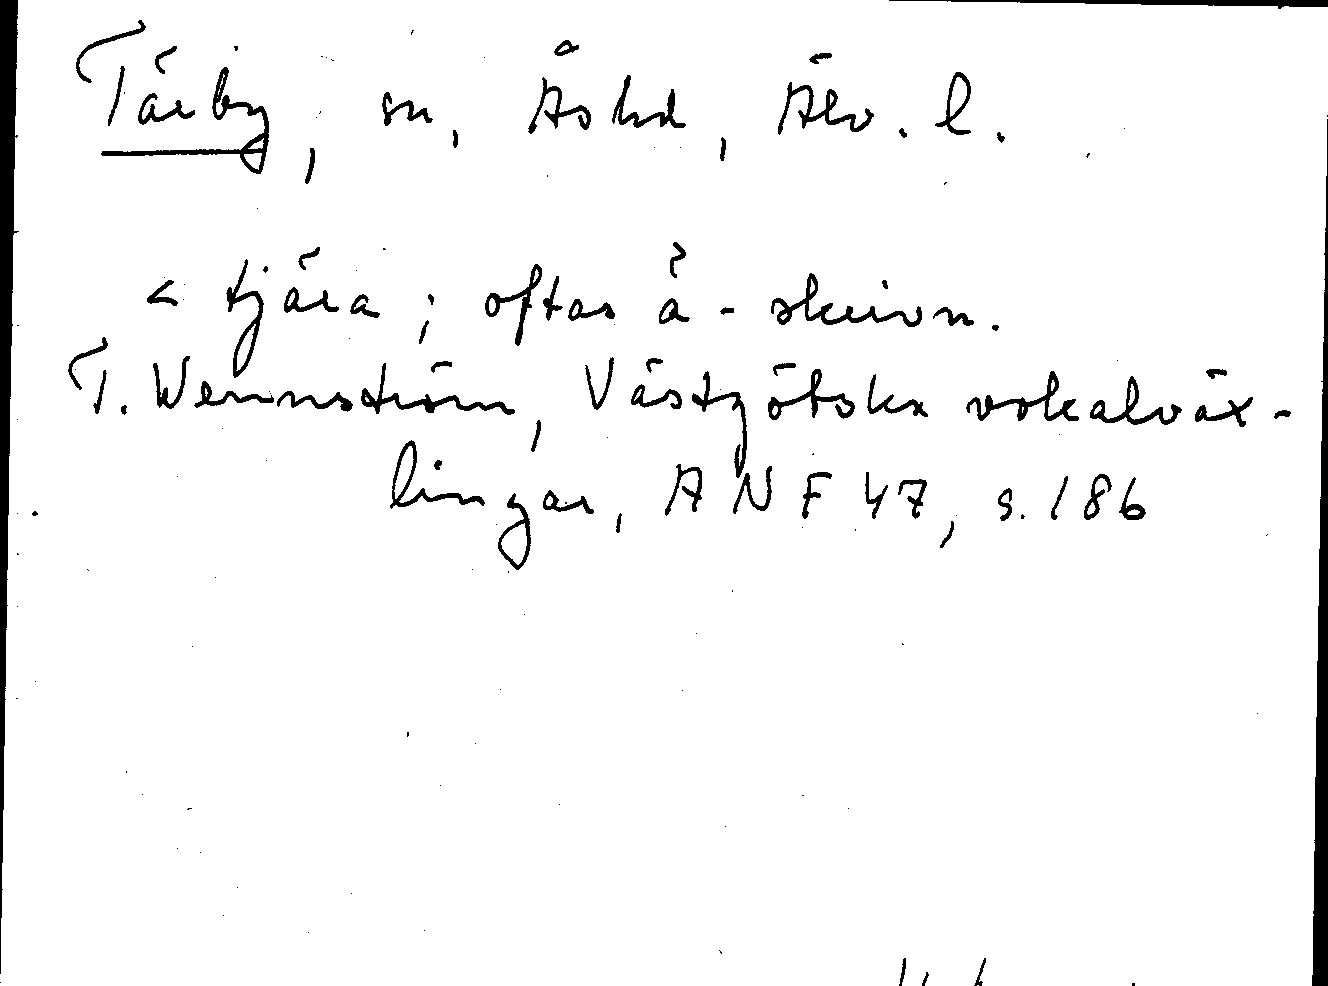 Tärby, sn, Åshd, Älv. l.
< tjära; oftas å - skrivn.
T. Wennström, Västgötska vokalväx-
lingar, ANF 47, s. 186